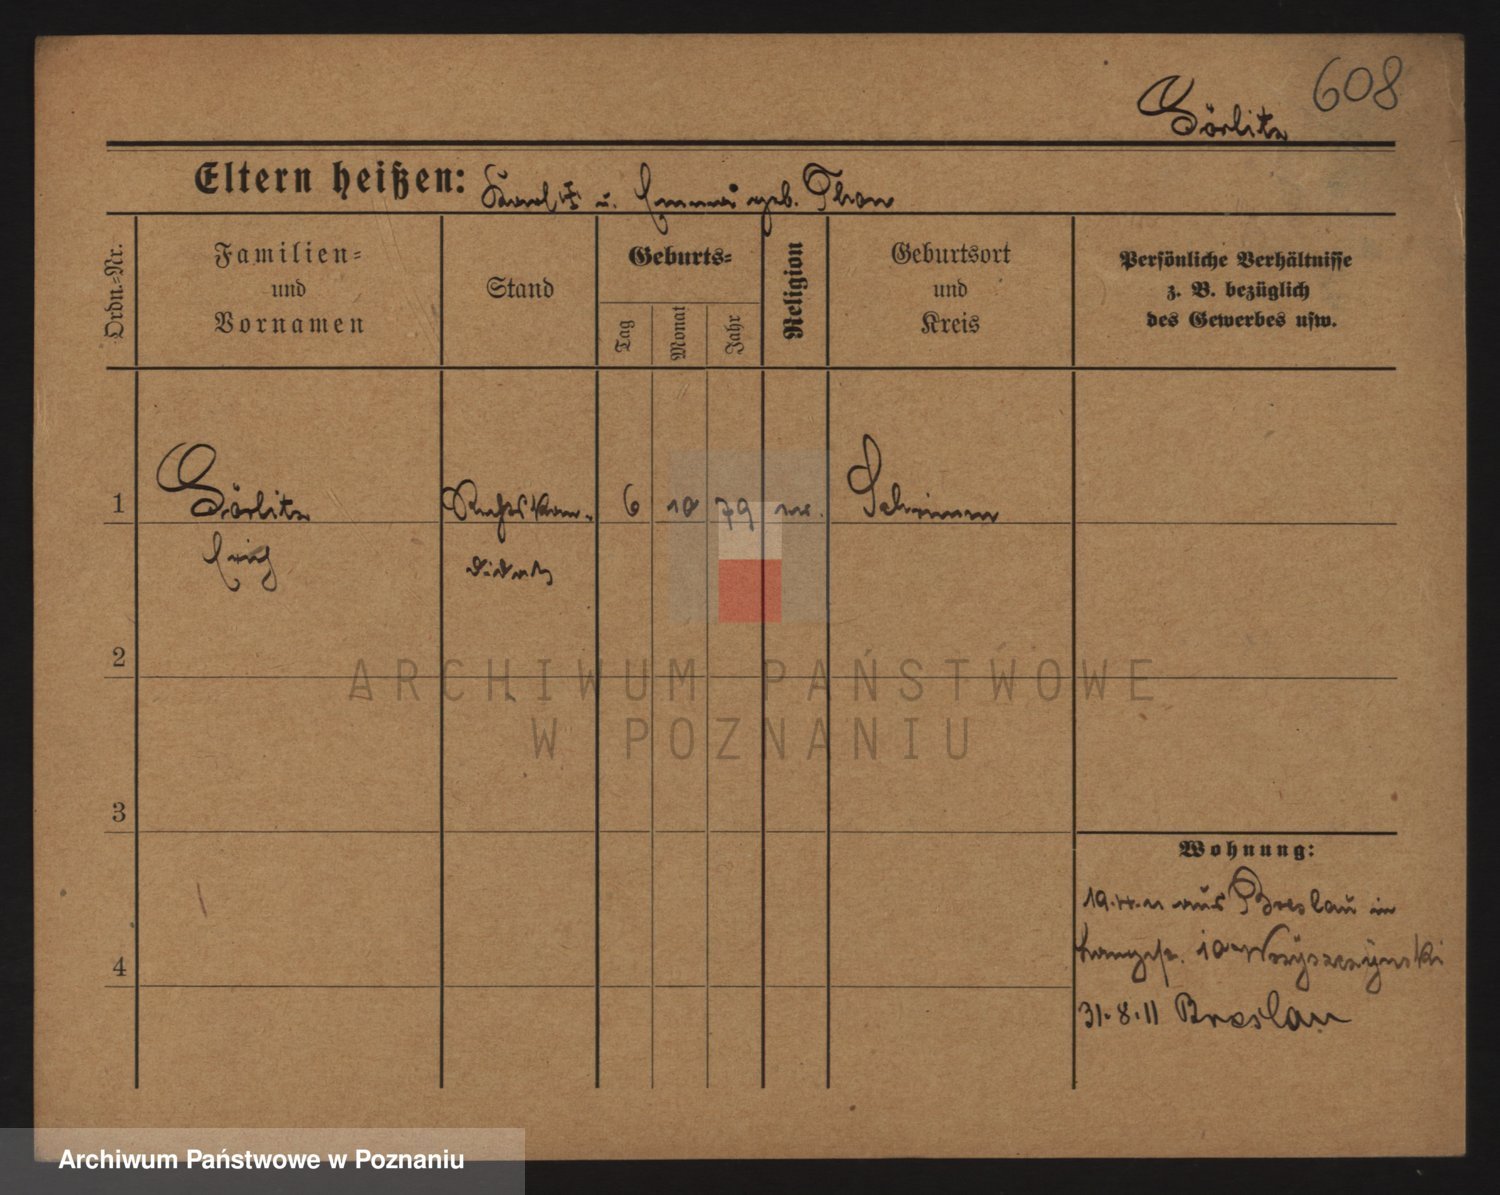 608
Görlitz
Eltern heißen: Karl u. Emma geb. Thon
Ordn.-Nr.
Familien-
und
Vornamen
Stand
Geburts-
Tag
Monat
Jahr
Religion
Geburtsort
und
Kreis
Persönliche Verhältnisse
z. B. bezüglich
des Gewerbes usw.
1
Görlitz
Rechtskan-
6
10
79
Schrimm
Erich
didat
2
ARCHIWUM PAŃSTWOWE
W POZNANIU
3
Wohnung:
aus Breslau in
Langestr. 10 Wozyszczynski
4
31.8.11 Breslau
Archiwum Państwowe w Poznaniu